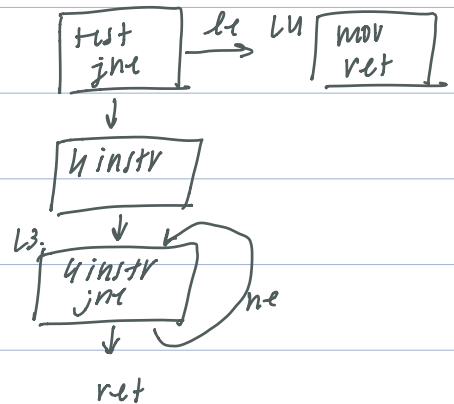 test
jne
le
L4
mov
ret
4 instr
L3:
4 instr
jne
ne
ret